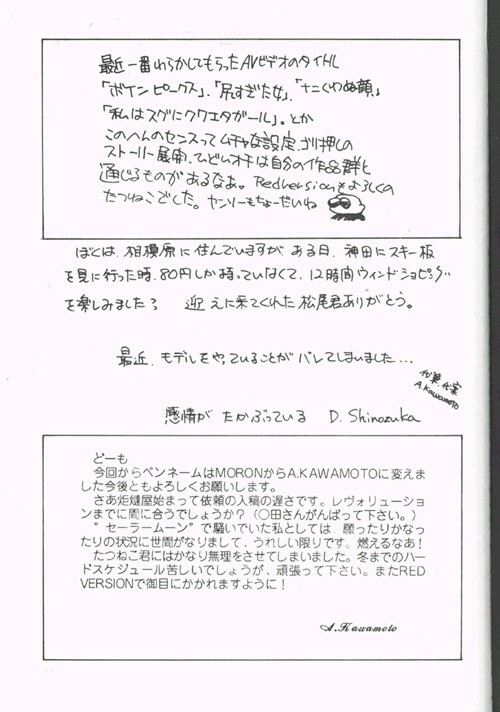 最近一番わらかしてもらったAVビデオのタイトル
「ボインピークス」、「尻すぎた女」、「ナニくわぬ顔」
「私はスグにクワエタガール」。とか
このへんのセンスってムチャな設定、ゴリ押しの
ストーリー展開、ひどいオチは自分の作品群と
通じるものがあるなあ。Redversionもよろしくの
たつねこでした。ヤンソーもちょーだいね
ぼくは、相模原に住んでいますが ある日、神田にスキー板
を見に行った時、80円しか持っていなくて、12時間ウィンドショピング
を楽しみました? 迎えに来てくれた松尾君ありがとう。
最近、モデルをやっていることがバレてしまいました…
代筆
A.Kawamoto
感情が たかぶっている D. Shinozuka
どーも
今回からペンネームはMORONからA.KAWAMOTOに変えま
した今後ともよろしくお願いします。
さあ炬燵屋始まって依頼の入稿の遅さです。レヴォリューショ
ンまでに間に合うでしょうか?(〇田さんがんばって下さい。)
"セーラームーン"で騒いでいた私としては 願ったりかなっ
たりの状況に世間がなりまして、うれしい限りです。燃えるなあ!
たつねこ君にはかなり無理をさせてしまいました。冬までのハー
ドスケジュール苦しいでしょうが、頑張って下さい。またRED
VERSIONで御目にかかれますように!
A.Kawamoto